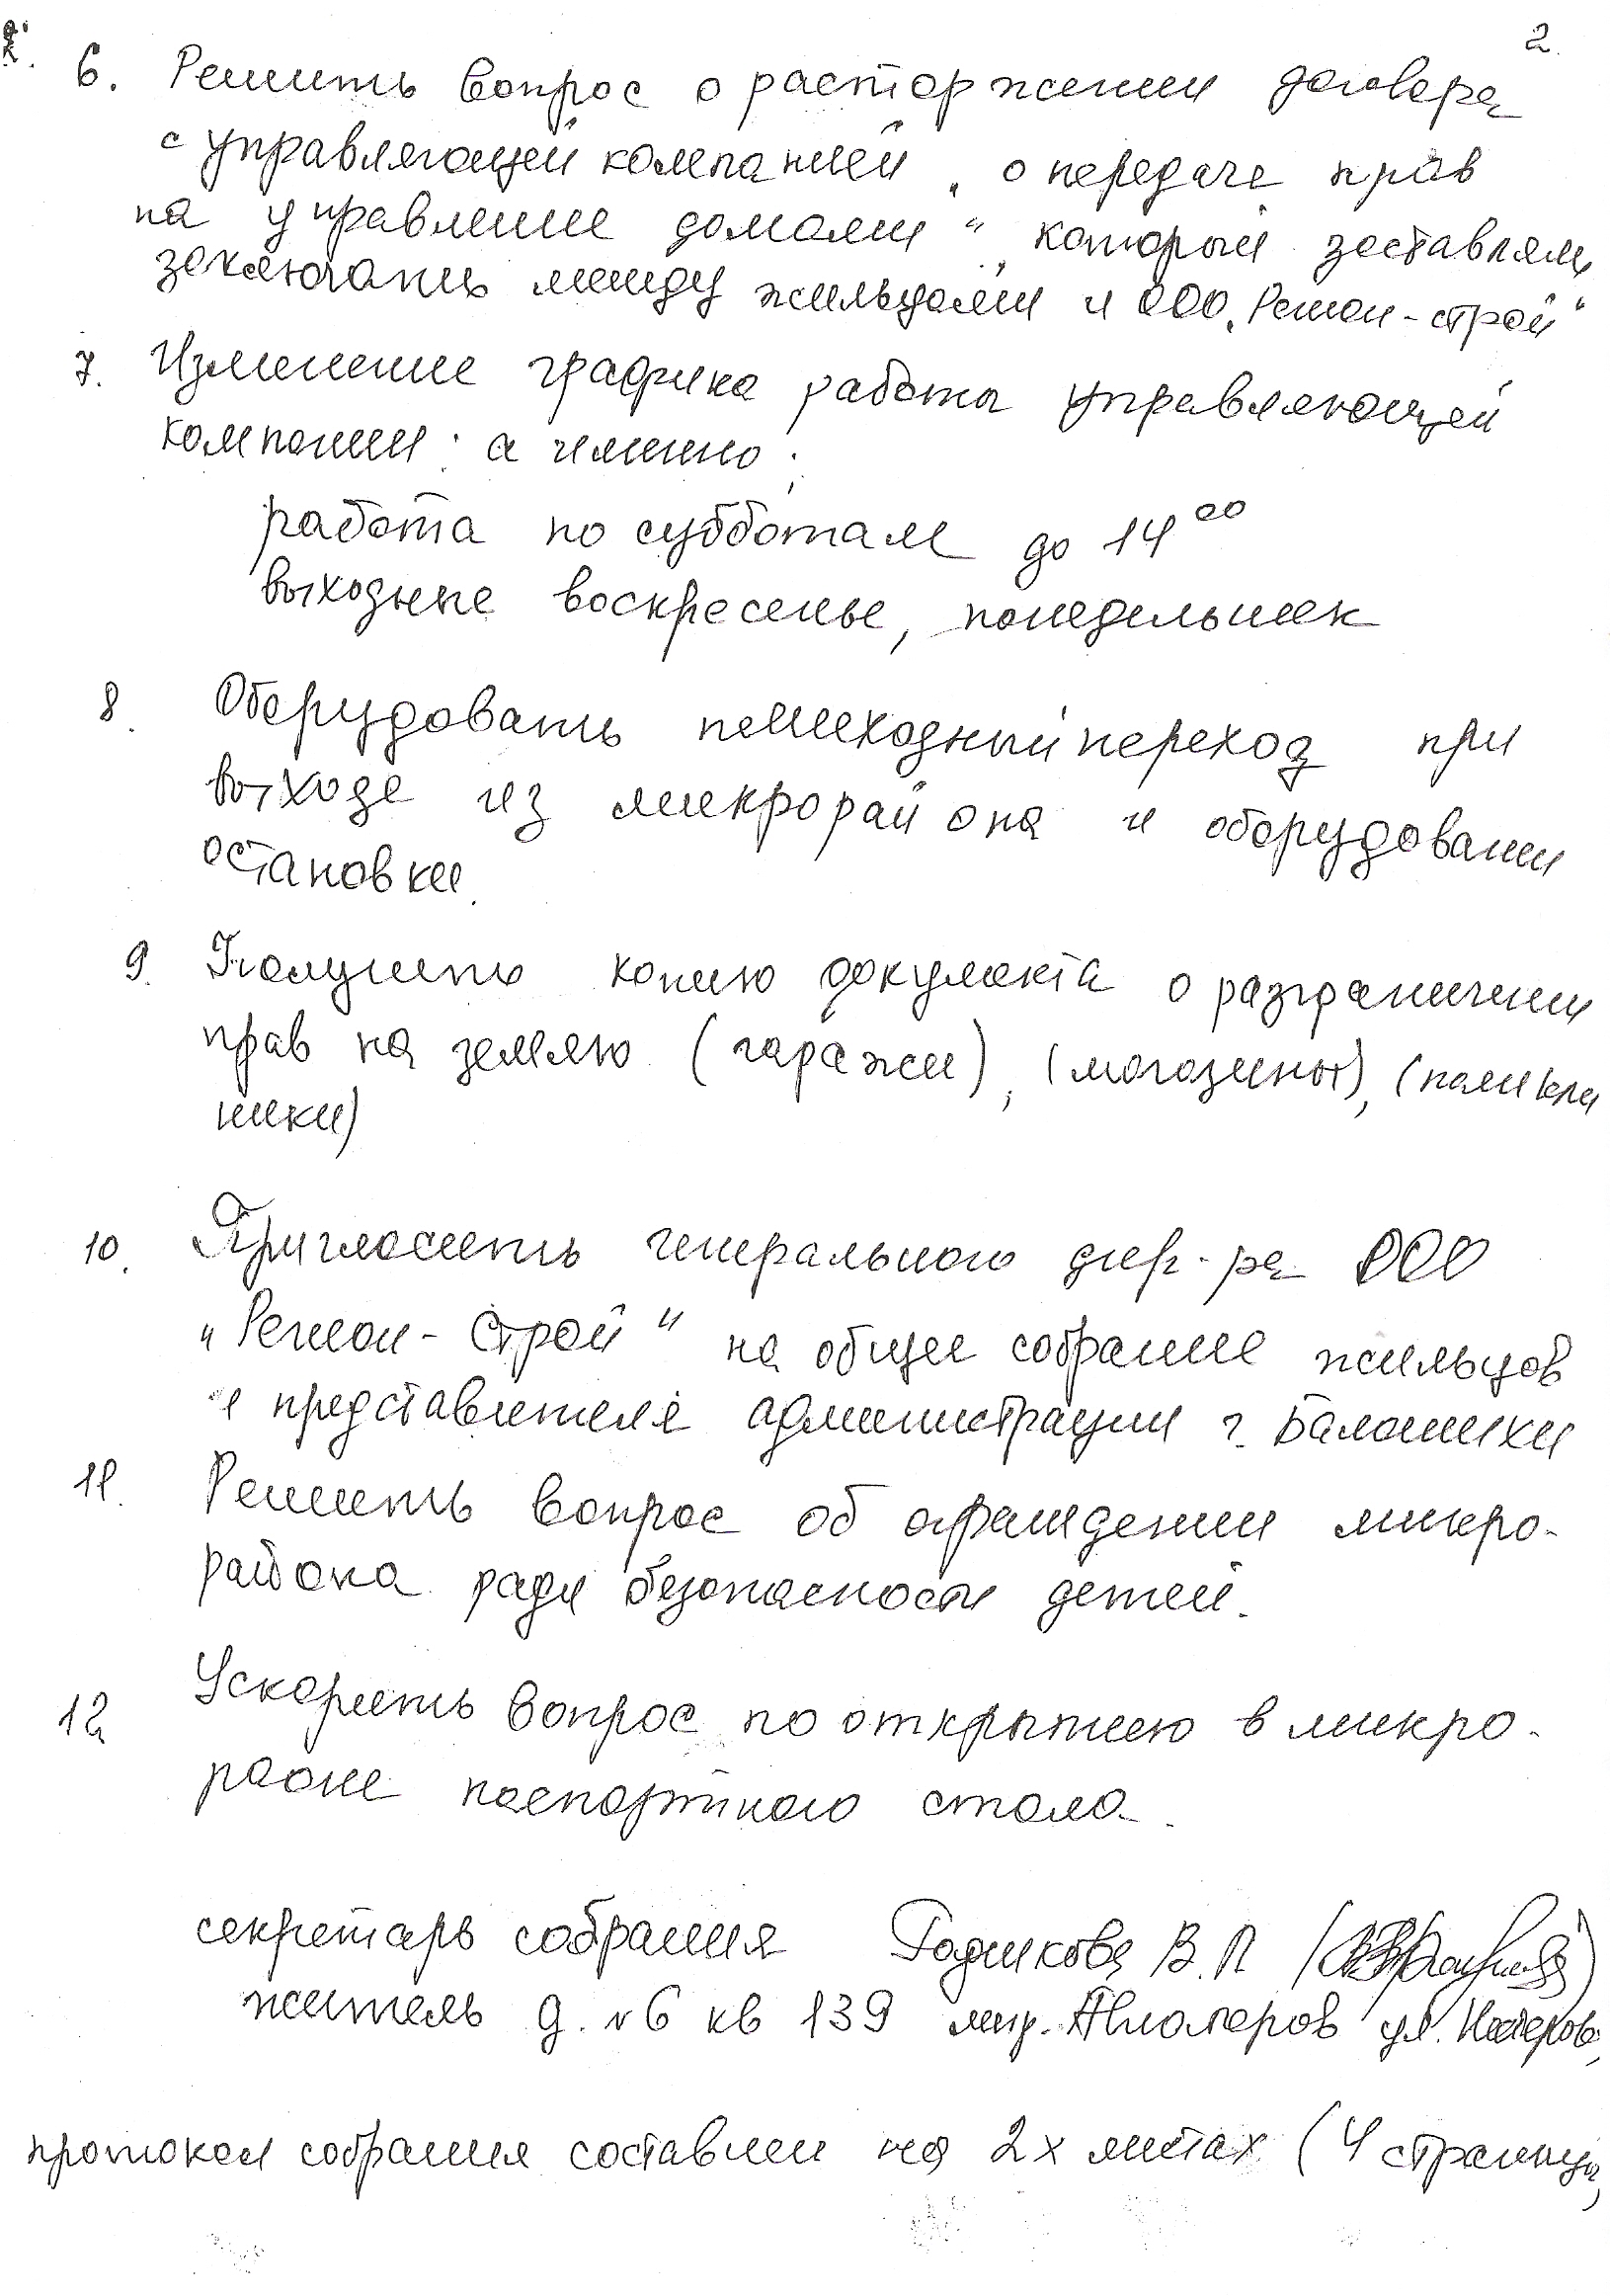 2.
6. Решить вопрос о расторжении договора
с управляющей компанией „о передаче прав
на управление домами“, который заставляли
заключать между жильцами и ООО „Регион-строй“
7. Изменение графика работы управляющей
компании: а именно:
работа по субботам до 14 00
выходные воскресенье, понедельник
8. Оборудовать пешеходный переход при
выходе из микрорайона и оборудовании
остановки.
9. Получить копию документа о разграничении
прав на землю (гаражи), (магазины), (поликли
ники)
10. Пригласить генерального дир-ра ООО
„Регион-Строй“ на общее собрание жильцов
и представителя администрации г. Балашихи
11. Решить вопрос об ограждении микро-
района ради безопасности детей.
12 Ускорить вопрос по открытию в микро-
раоне паспортного стола.
секретарь собрания Родникова В. П
житель д. №6 кв 139 мкр. Авиаторов ул.
протокол собрания составлен на 2х листах (4 страницы)